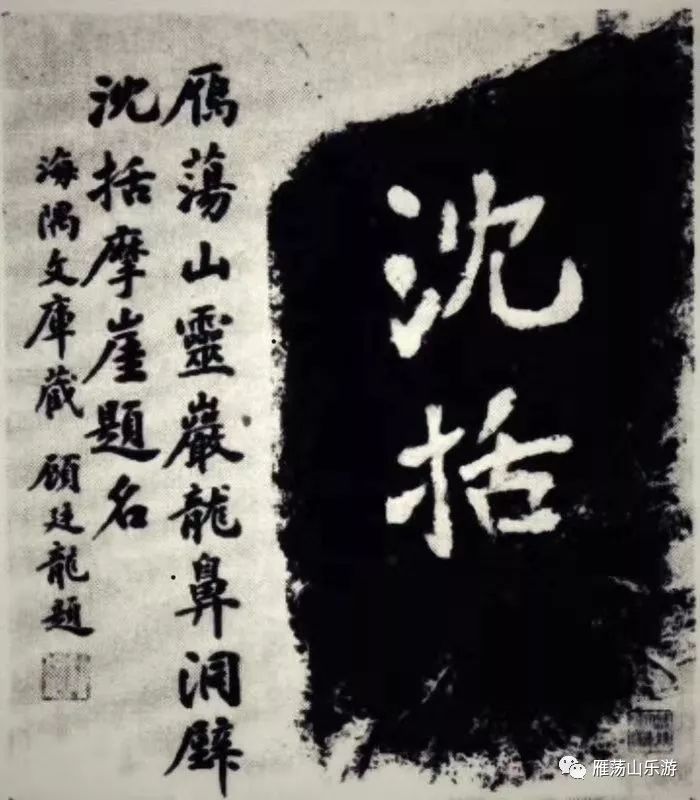 沈括
鴈蕩山靈巖龍鼻洞壁
沈括摩崖題名
海隅文庫藏 顧廷龍題
雁荡山乐游